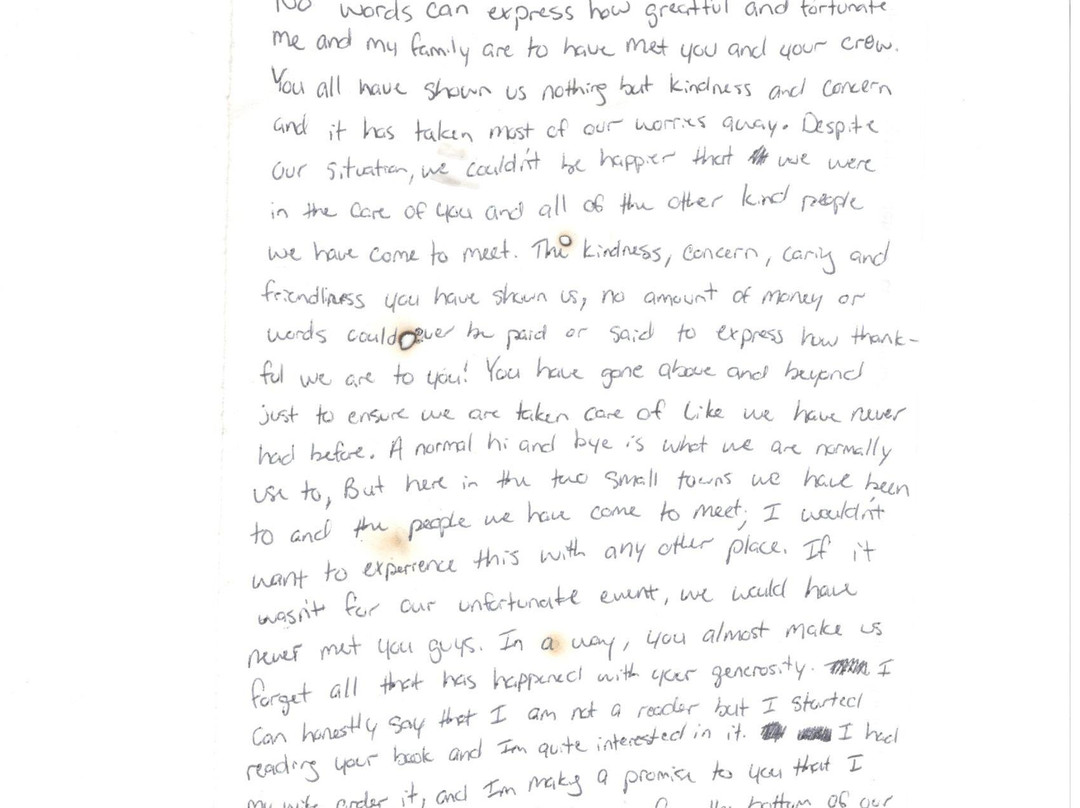 No words can express how greatful and fortunate
me and my family are to have met you and your crew.
You all have shown us nothing but kindness and concern
and it has taken most of our worries away. Despite
our situation, we couldn't be happier that we were
in the care of you and all of the other kind people
we have come to meet. The kindness, concern, caring and
friendliness you have shown us, no amount of money or
words could ever be paid or said to express how thank-
ful we are to you! You have gone above and beyond
just to ensure we are taken care of like we have never
had before. A normal hi and bye is what we are normally
use to, But here in the two small towns we have been
to and the people we have come to meet, I wouldn't
want to experience this with any other place. If it
wasn't for our unfortunate event, we would have
never met you guys. In a way, you almost make us
forget all that has happened with your generosity. I
can honestly say that I am not a reader but I started
reading your book and Im quite interested in it. I had
my wife order it, and Im making a promise to you that I
bottom of our